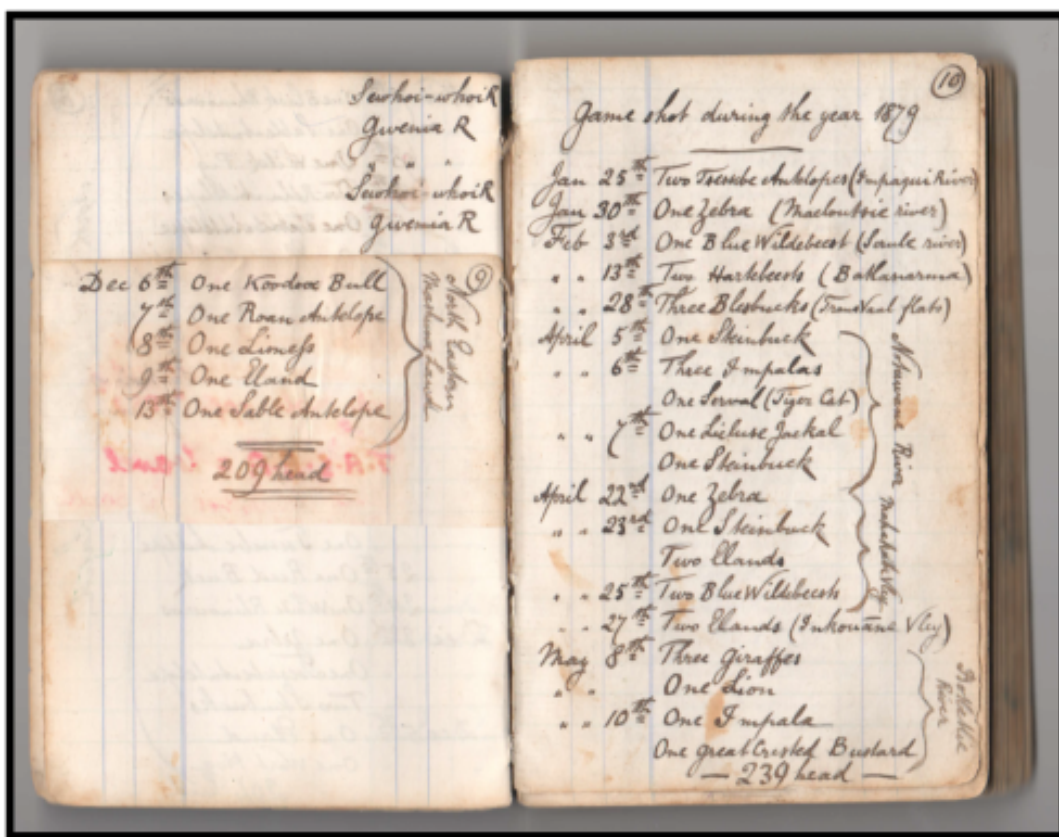 Sewhoi-whoi R
Gwenia R
" " "
Sewhoi-whoi R
Gwenia R
9
Dec 6th One Koodoo Bull
7th One Roan Antelope
8th One Lioness
9th One Eland
13th One Sable Antelope
North Eastern
Mashuna Land
209 head
10
Game shot during the year 1879
Jan 25th Two Tsessbe Antelopes (Impaqui River)
Jan 30th One Zebra (Macloutsie river)
Feb 3rd One Blue Wildebeest (Serule river)
" " 13th Two Hartebeests (Batlanarma)
" " 28th Three Blesbucks (TransVaal flats)
April 5th One Steinbuck
" " 6th Three Impalas
One Serval (Tiger Cat)
" " 7th One Jackal
One Steinbuck
April 22nd One Zebra
" " 23rd One Steinbuck
Two Elands
" " 25th Two Blue Wildebeests
Notuane River
" " 27th Two Elands (Inkouāne Vley)
May 8th Three Giraffes
" " One Lion
" " 10th One Impala
One great Crested Bustard
River
— 239 head —